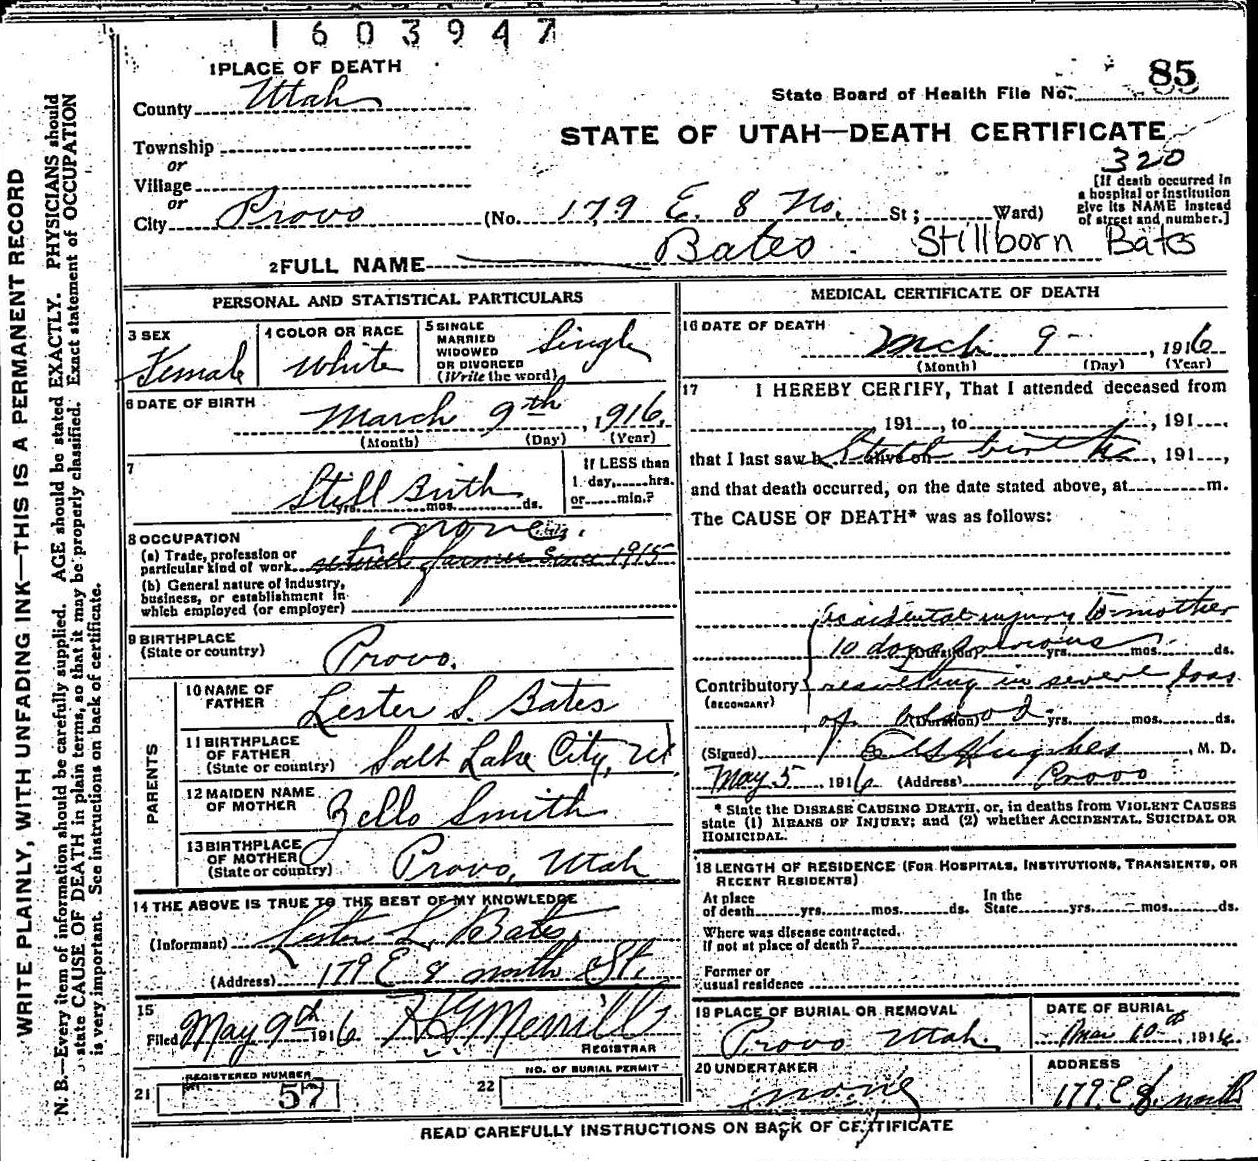 1603947
1 PLACE OF DEATH
85
County Utah
State Board of Health File No.
STATE OF UTAH—DEATH CERTIFICATE
Township
or
Village
or
City Provo (No. 179 E. 8 No. St; Ward)
320
[If death occurred in
a hospital or institution
give its NAME instead
of street and number.]
2 FULL NAME Bates Stillborn Bates
PERSONAL AND STATISTICAL PARTICULARS
3 SEX
Female
4 COLOR OR RACE
White
5 SINGLE
MARRIED
WIDOWED
OR DIVORCED
(Write the word)
Single
6 DATE OF BIRTH
March 9th, 1916.
(Month) (Day) (Year)
7
Still Birth
yrs. mos. ds.
If LESS than
1 day, hrs.
or min.?
8 OCCUPATION
none.
(a) Trade, profession or
particular kind of work retired farmer since 1915
(b) General nature of industry,
business, or establishment in
which employed (or employer)
9 BIRTHPLACE
(State or country) Provo.
PARENTS
10 NAME OF
FATHER Lester S. Bates
11 BIRTHPLACE
OF FATHER
(State or country) Salt Lake City, Ut.
12 MAIDEN NAME
OF MOTHER Zello Smith
13 BIRTHPLACE
OF MOTHER
(State or country) Provo, Utah
14 THE ABOVE IS TRUE TO THE BEST OF MY KNOWLEDGE
(Informant) Lester L. Bates,
(Address) 179 E 8 north St.
15
Filed May 9th 1916 H G Merrill
REGISTRAR
21 REGISTERED NUMBER
57
22 NO. OF BURIAL PERMIT
MEDICAL CERTIFICATE OF DEATH
16 DATE OF DEATH
Mch 9 , 1916
(Month) (Day) (Year)
17 I HEREBY CERTIFY, That I attended deceased from
191 , to , 191 ,
that I last saw h alive on Still birth , 191 ,
and that death occurred, on the date stated above, at m.
The CAUSE OF DEATH* was as follows:
accidental injury to mother
10 days previous
(Duration) yrs. mos. ds.
Contributory resulting in severe loss
(SECONDARY)
of blood.
(Duration) yrs. mos. ds.
(Signed) Hughes , M. D.
May 5, 1916 (Address) Provo
* State the DISEASE CAUSING DEATH, or, in deaths from VIOLENT CAUSES
state (1) MEANS OF INJURY; and (2) whether ACCIDENTAL, SUICIDAL OR
HOMICIDAL.
18 LENGTH OF RESIDENCE (FOR HOSPITALS, INSTITUTIONS, TRANSIENTS, OR
RECENT RESIDENTS)
At place In the
of death yrs. mos. ds. State yrs. mos. ds.
Where was disease contracted,
if not at place of death?
Former or
usual residence
19 PLACE OF BURIAL OR REMOVAL
Provo Utah.
DATE OF BURIAL
Mar 10th, 1916
20 UNDERTAKER
none
ADDRESS
179 E 8. north
READ CAREFULLY INSTRUCTIONS ON BACK OF CERTIFICATE
WRITE PLAINLY, WITH UNFADING INK—THIS IS A PERMANENT RECORD
N. B.—Every item of information should be carefully supplied. AGE should be stated EXACTLY. PHYSICIANS should
state CAUSE OF DEATH in plain terms, so that it may be properly classified. Exact statement of OCCUPATION
is very important. See instructions on back of certificate.